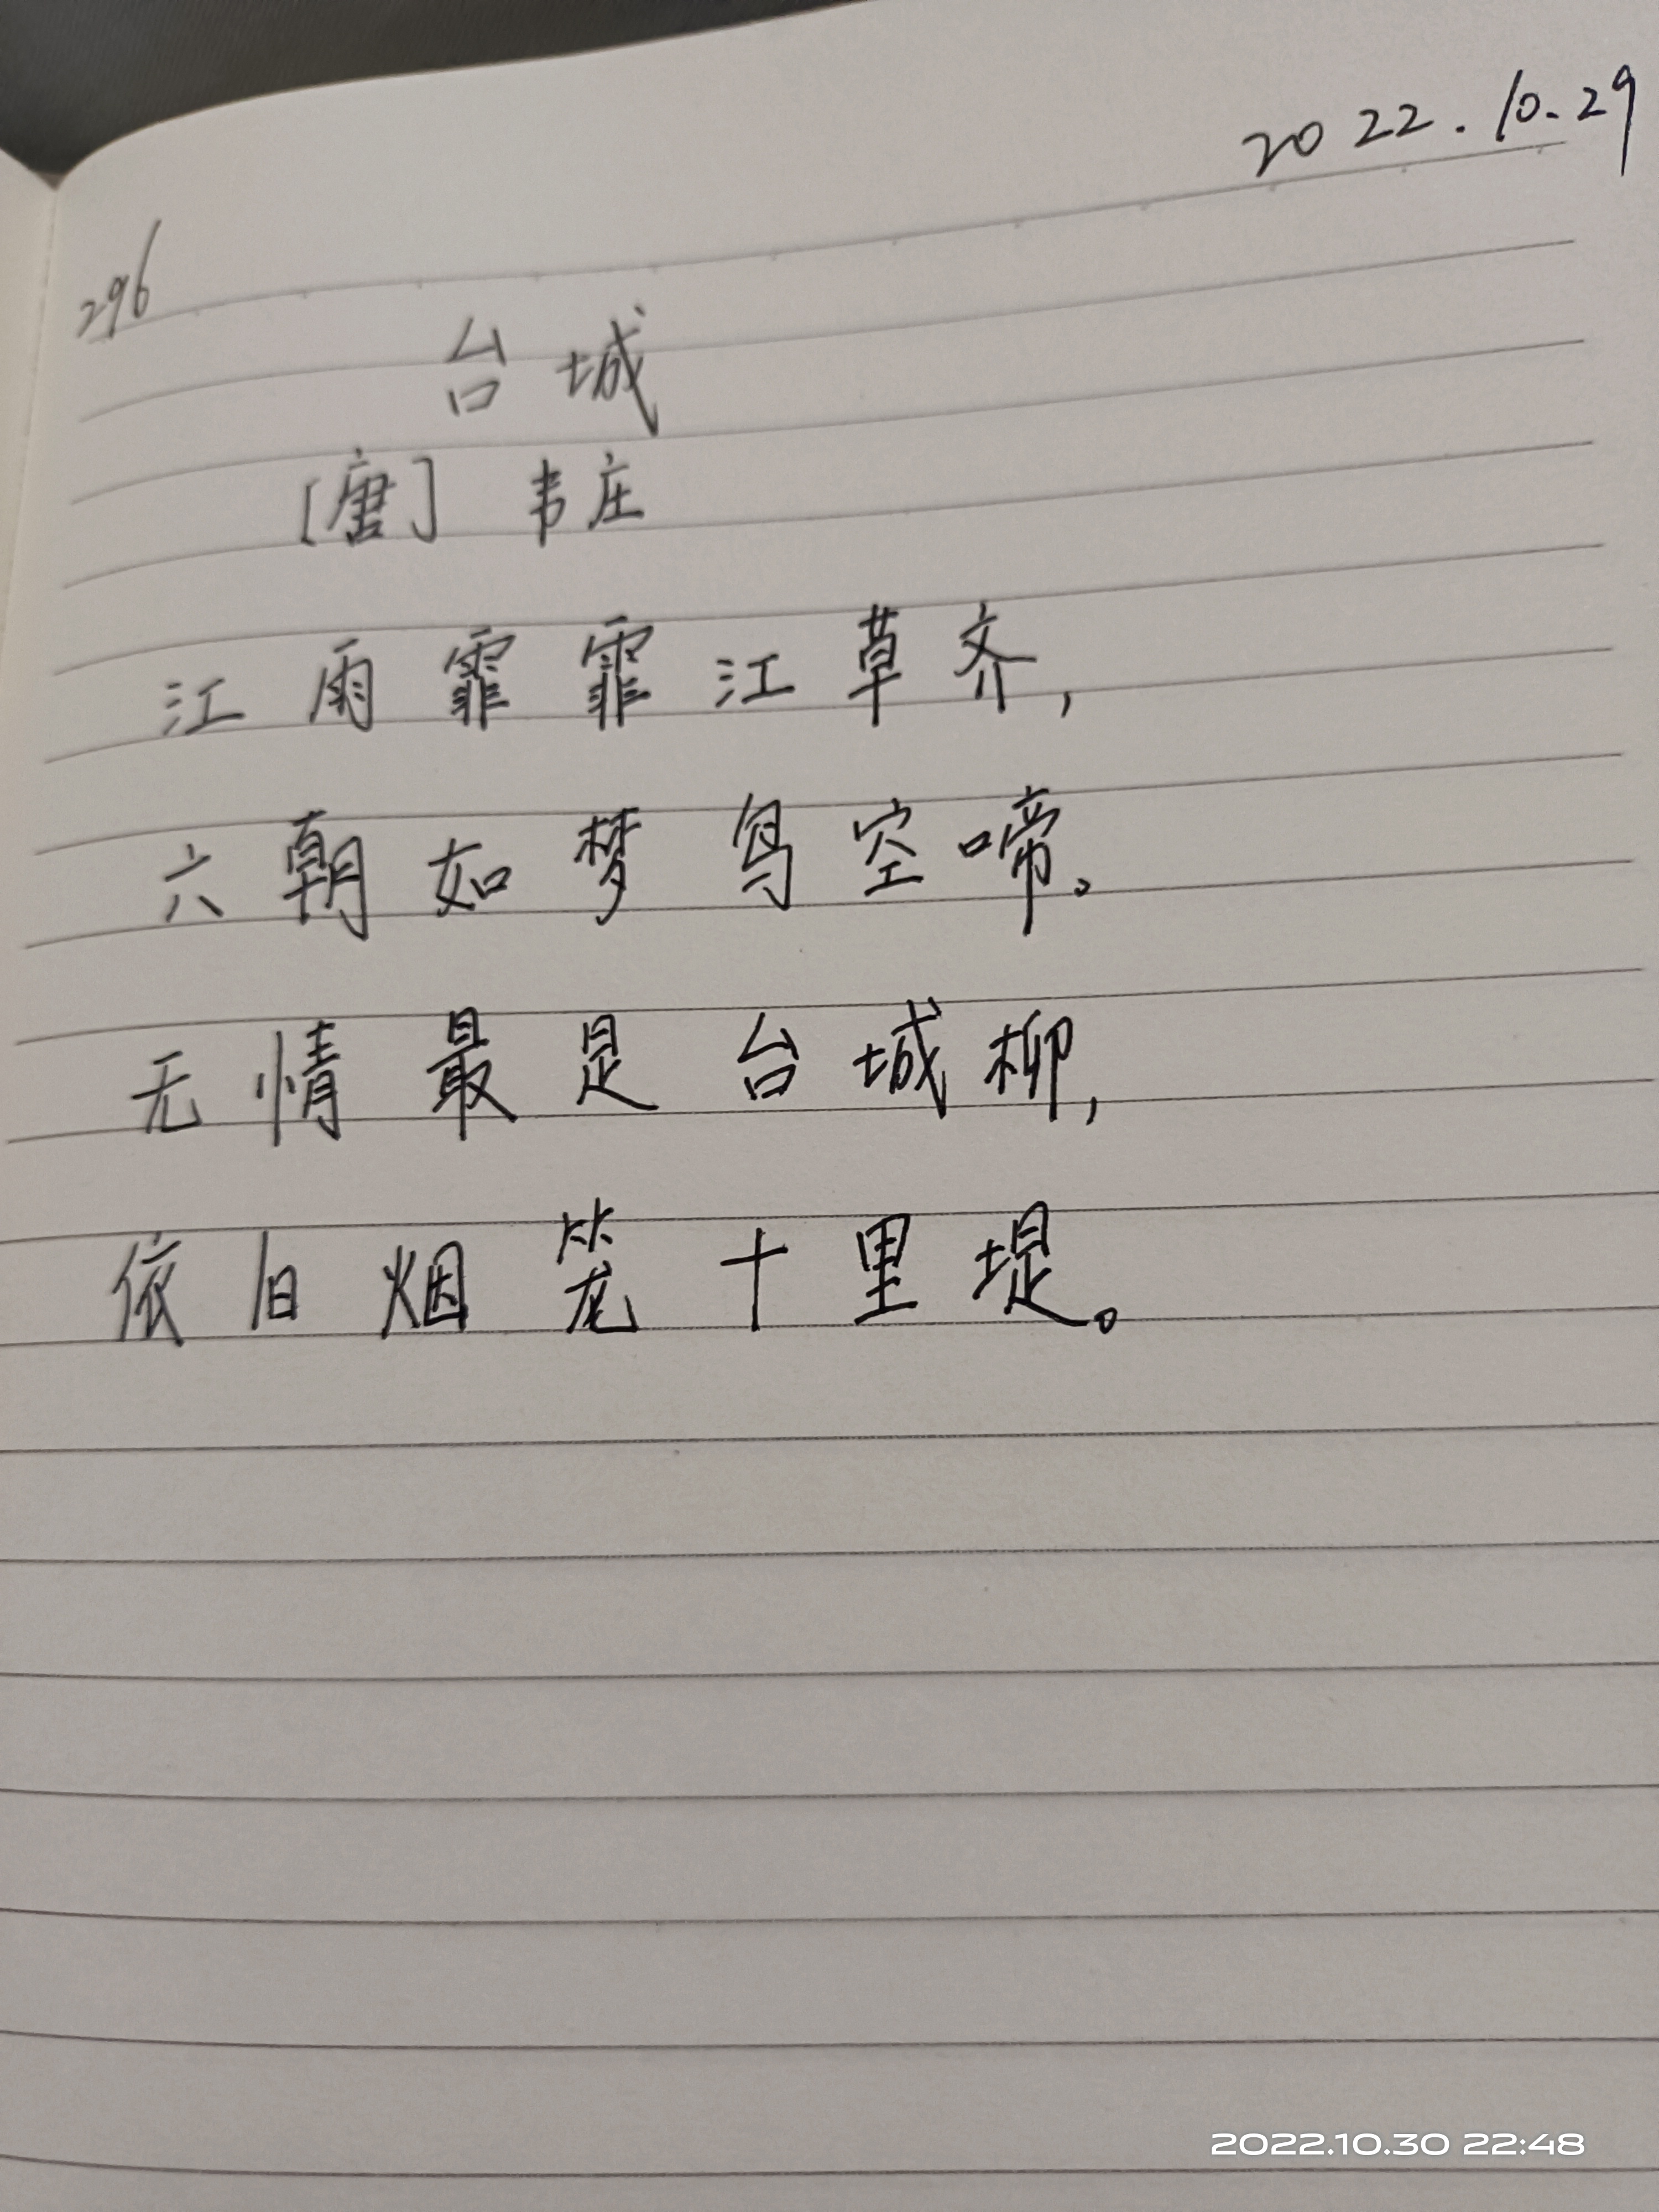 2022.10.29
296
台城
[唐] 韦庄
江雨霏霏江草齐,
六朝如梦鸟空啼。
无情最是台城柳,
依旧烟笼十里堤。
2022.10.30 22:48